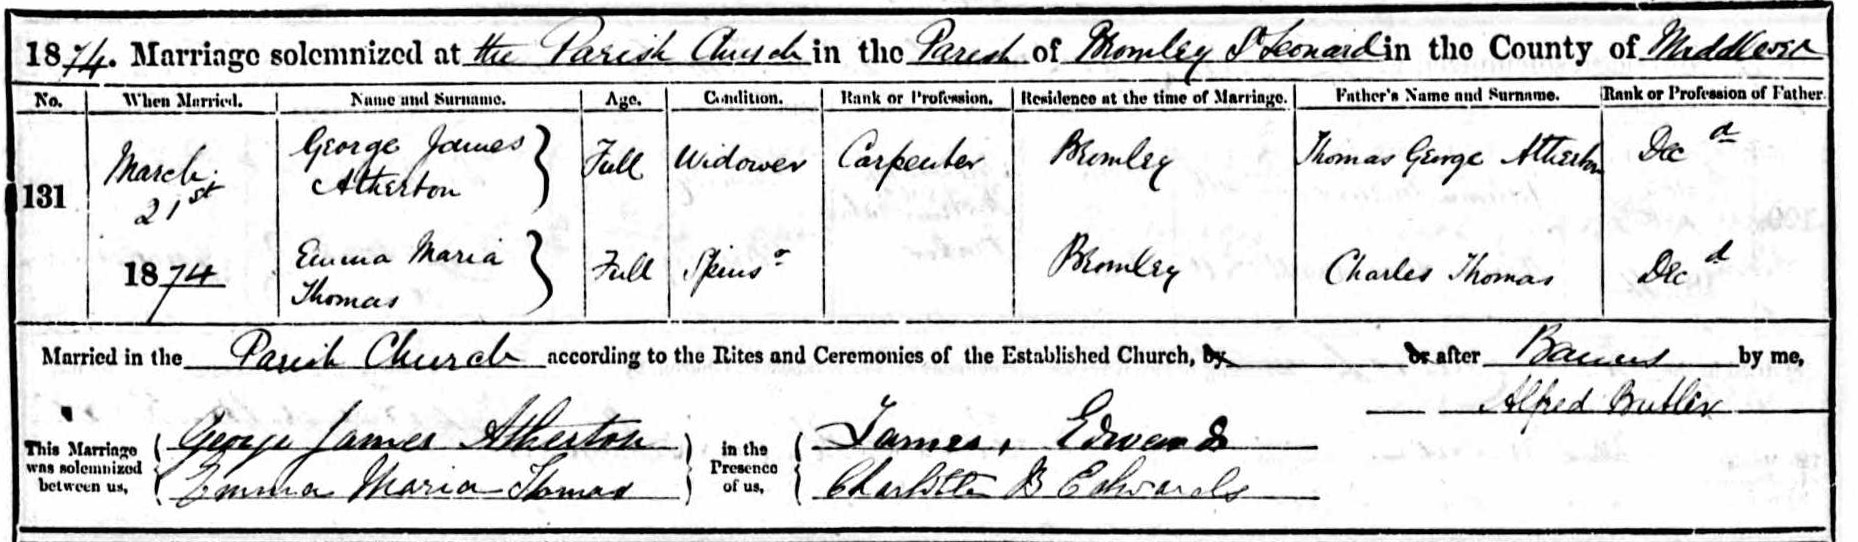 1874. Marriage solemnized at the Parish Church in the Parish of Bromley St Leonard in the County of Middlesex
No. When Married. Name and Surname. Age. Condition. Rank or Profession. Residence at the time of Marriage. Father's Name and Surname. Rank or Profession of Father.
131 March 21st 1874
George James Atherton } Full Widower Carpenter Bromley Thomas George Atherton Decd
Emma Maria Thomas } Full Spinsr Bromley Charles Thomas Decd
Married in the Parish Church according to the Rites and Ceremonies of the Established Church, by or after Banns by me,
Alfred Butler
This Marriage was solemnized between us, { George James Atherton } in the Presence of us, { James Edwards
Emma Maria Thomas Charlotte B Edwards